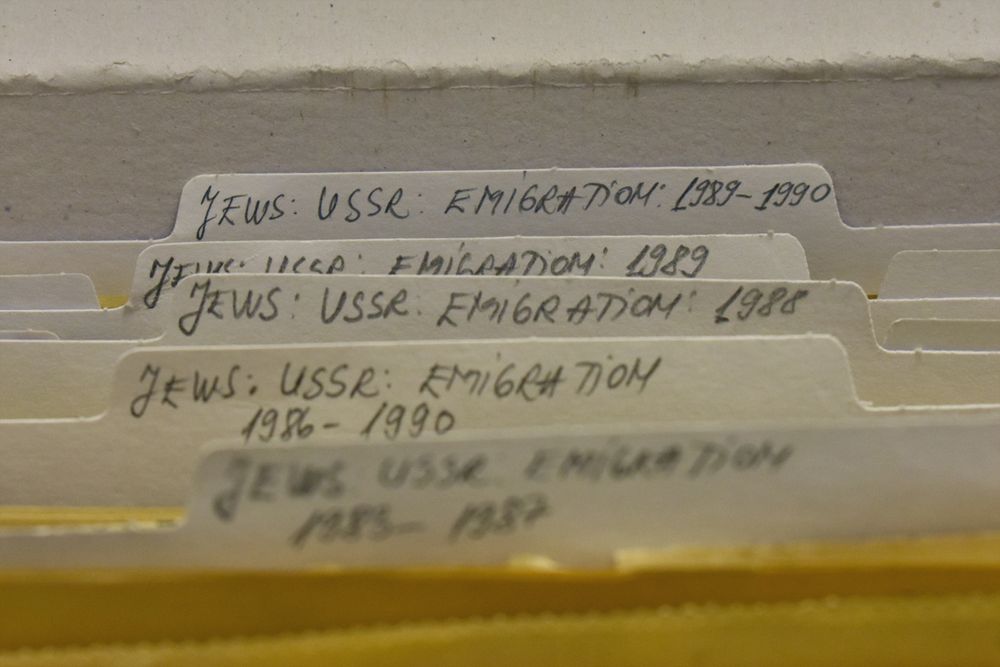 JEWS: USSR: EMIGRATION: 1989-1990
JEWS: USSR: EMIGRATION: 1989
JEWS: USSR: EMIGRATION: 1988
JEWS: USSR: EMIGRATION
1986- 1990
JEWS USSR EMIGRATION
1987